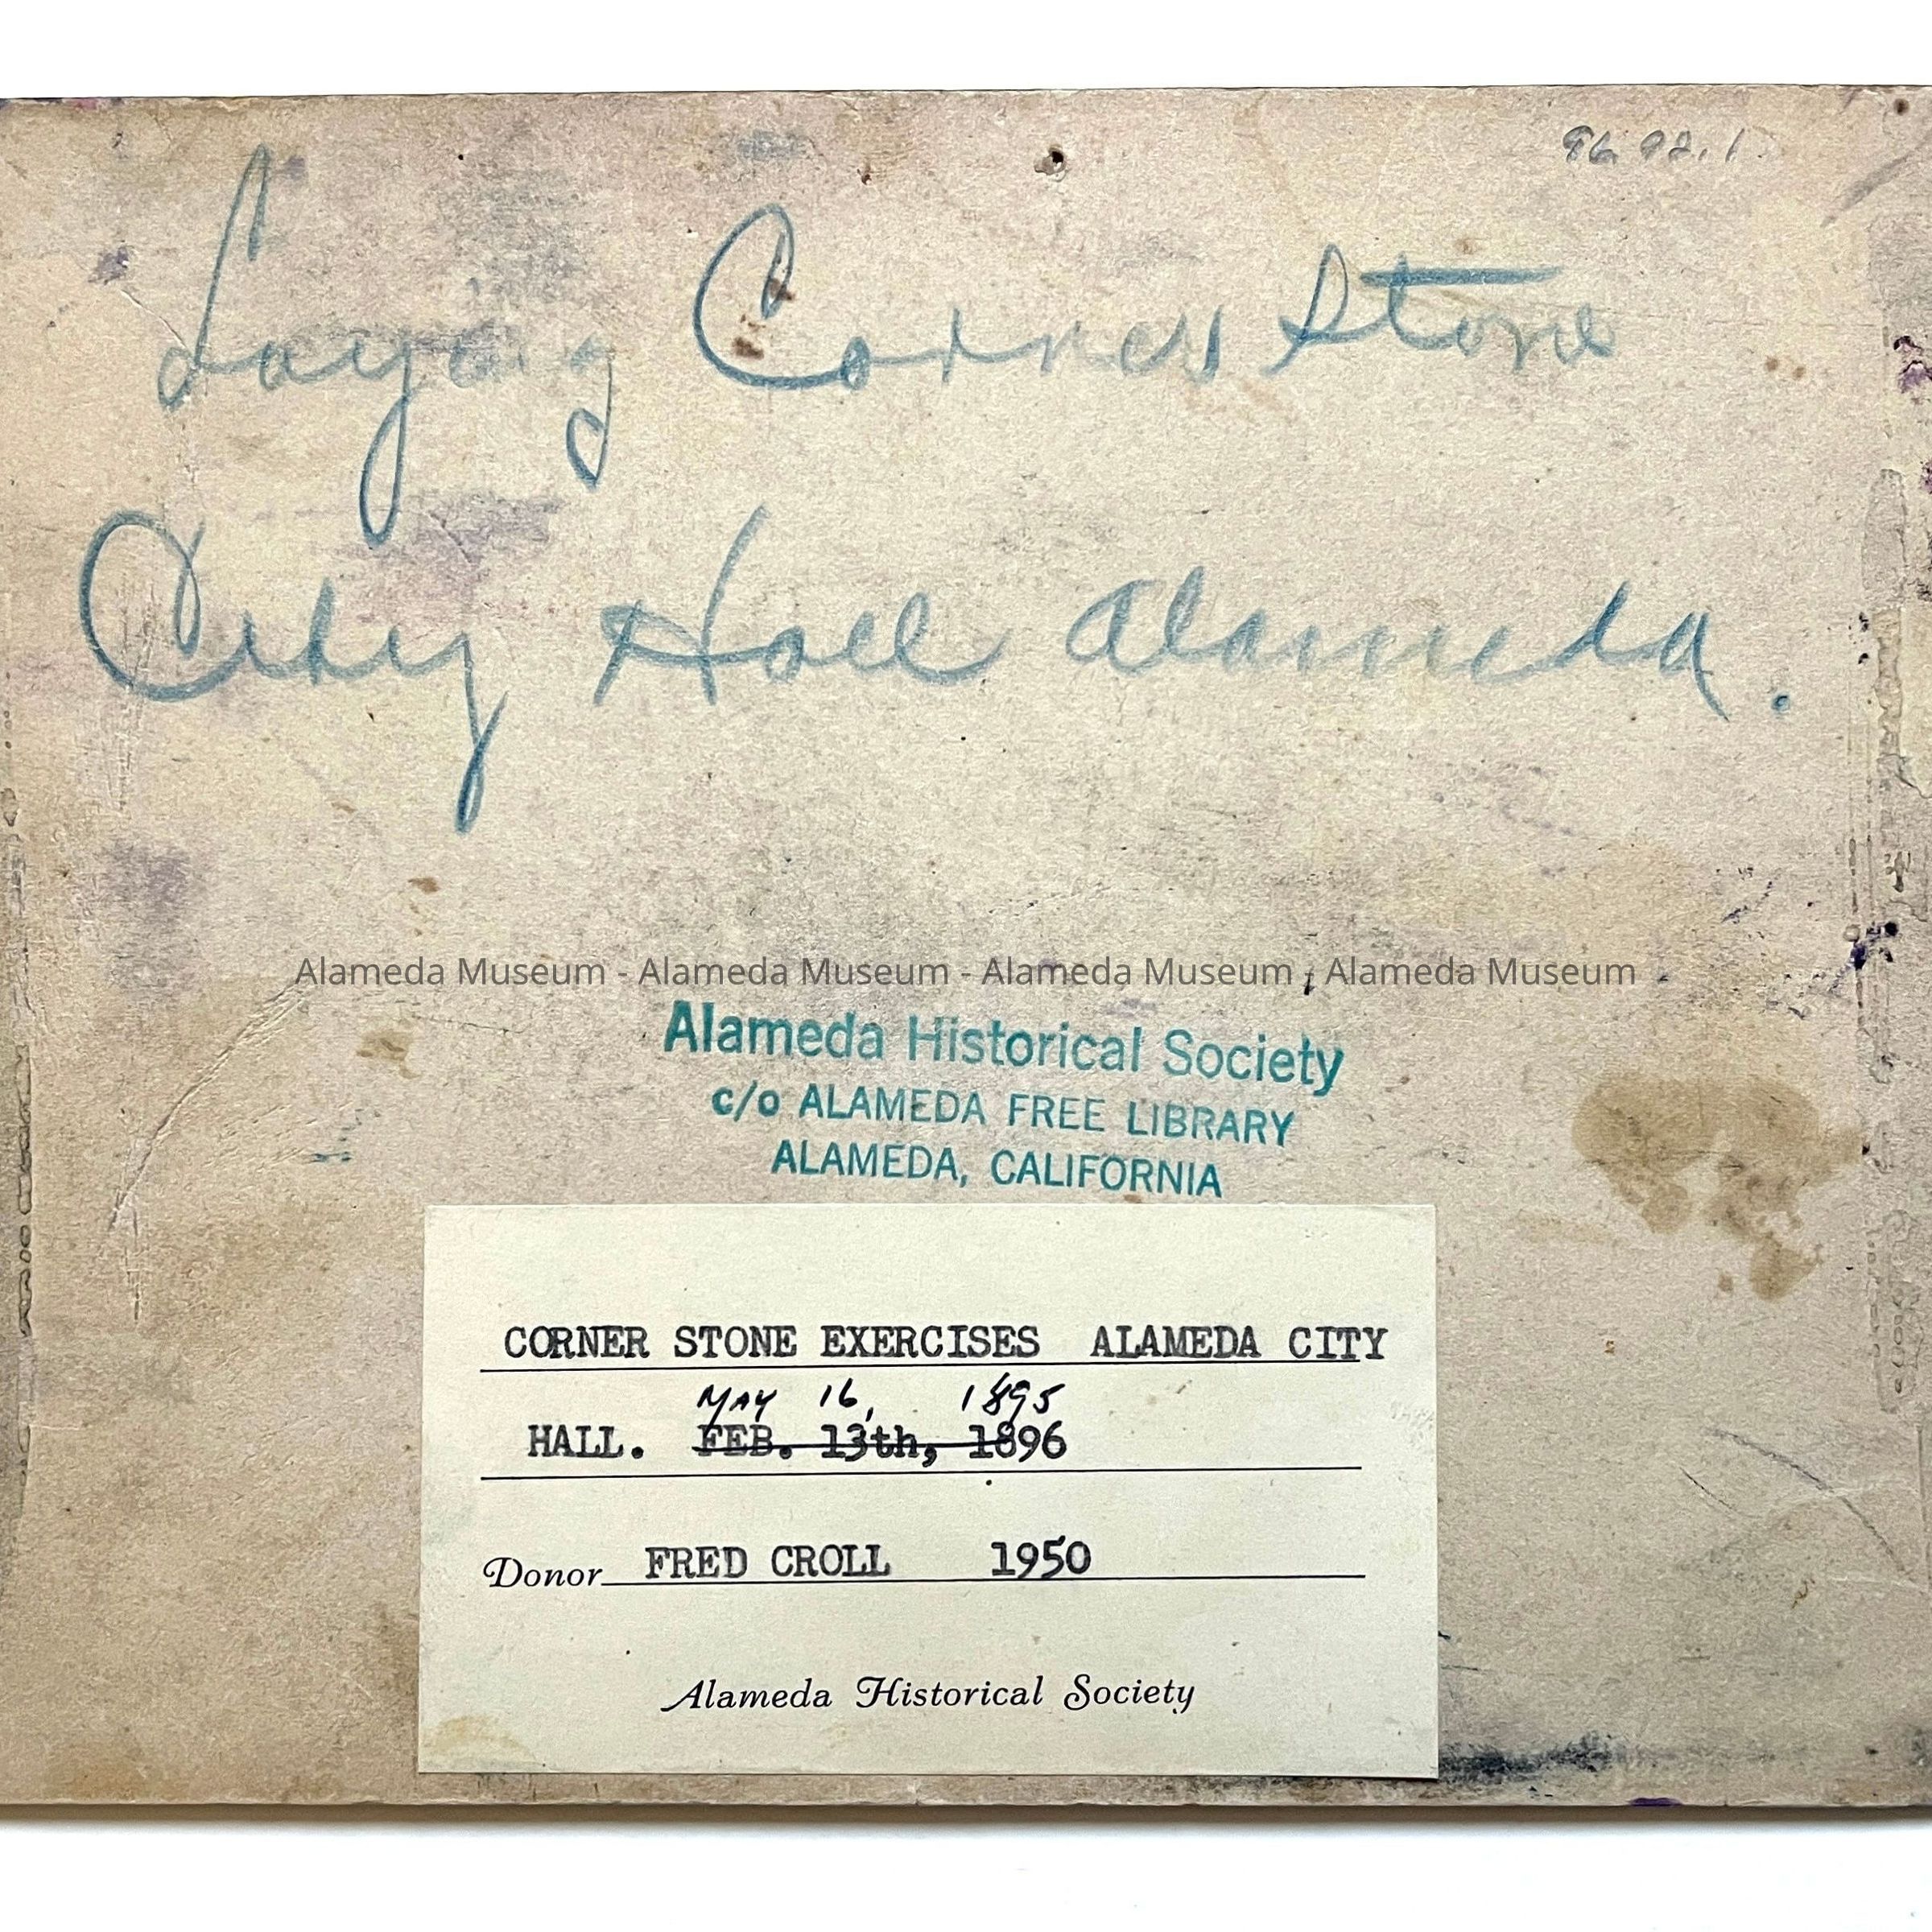 Laying Corner Stone
City Hall Alameda.
Alameda Museum - Alameda Museum - Alameda Museum - Alameda Museum
Alameda Historical Society
c/o ALAMEDA FREE LIBRARY
ALAMEDA, CALIFORNIA
CORNER STONE EXERCISES ALAMEDA CITY
MAY 16, 1895
HALL. FEB. 13th, 1896
Donor FRED CROLL 1950
Alameda Historical Society